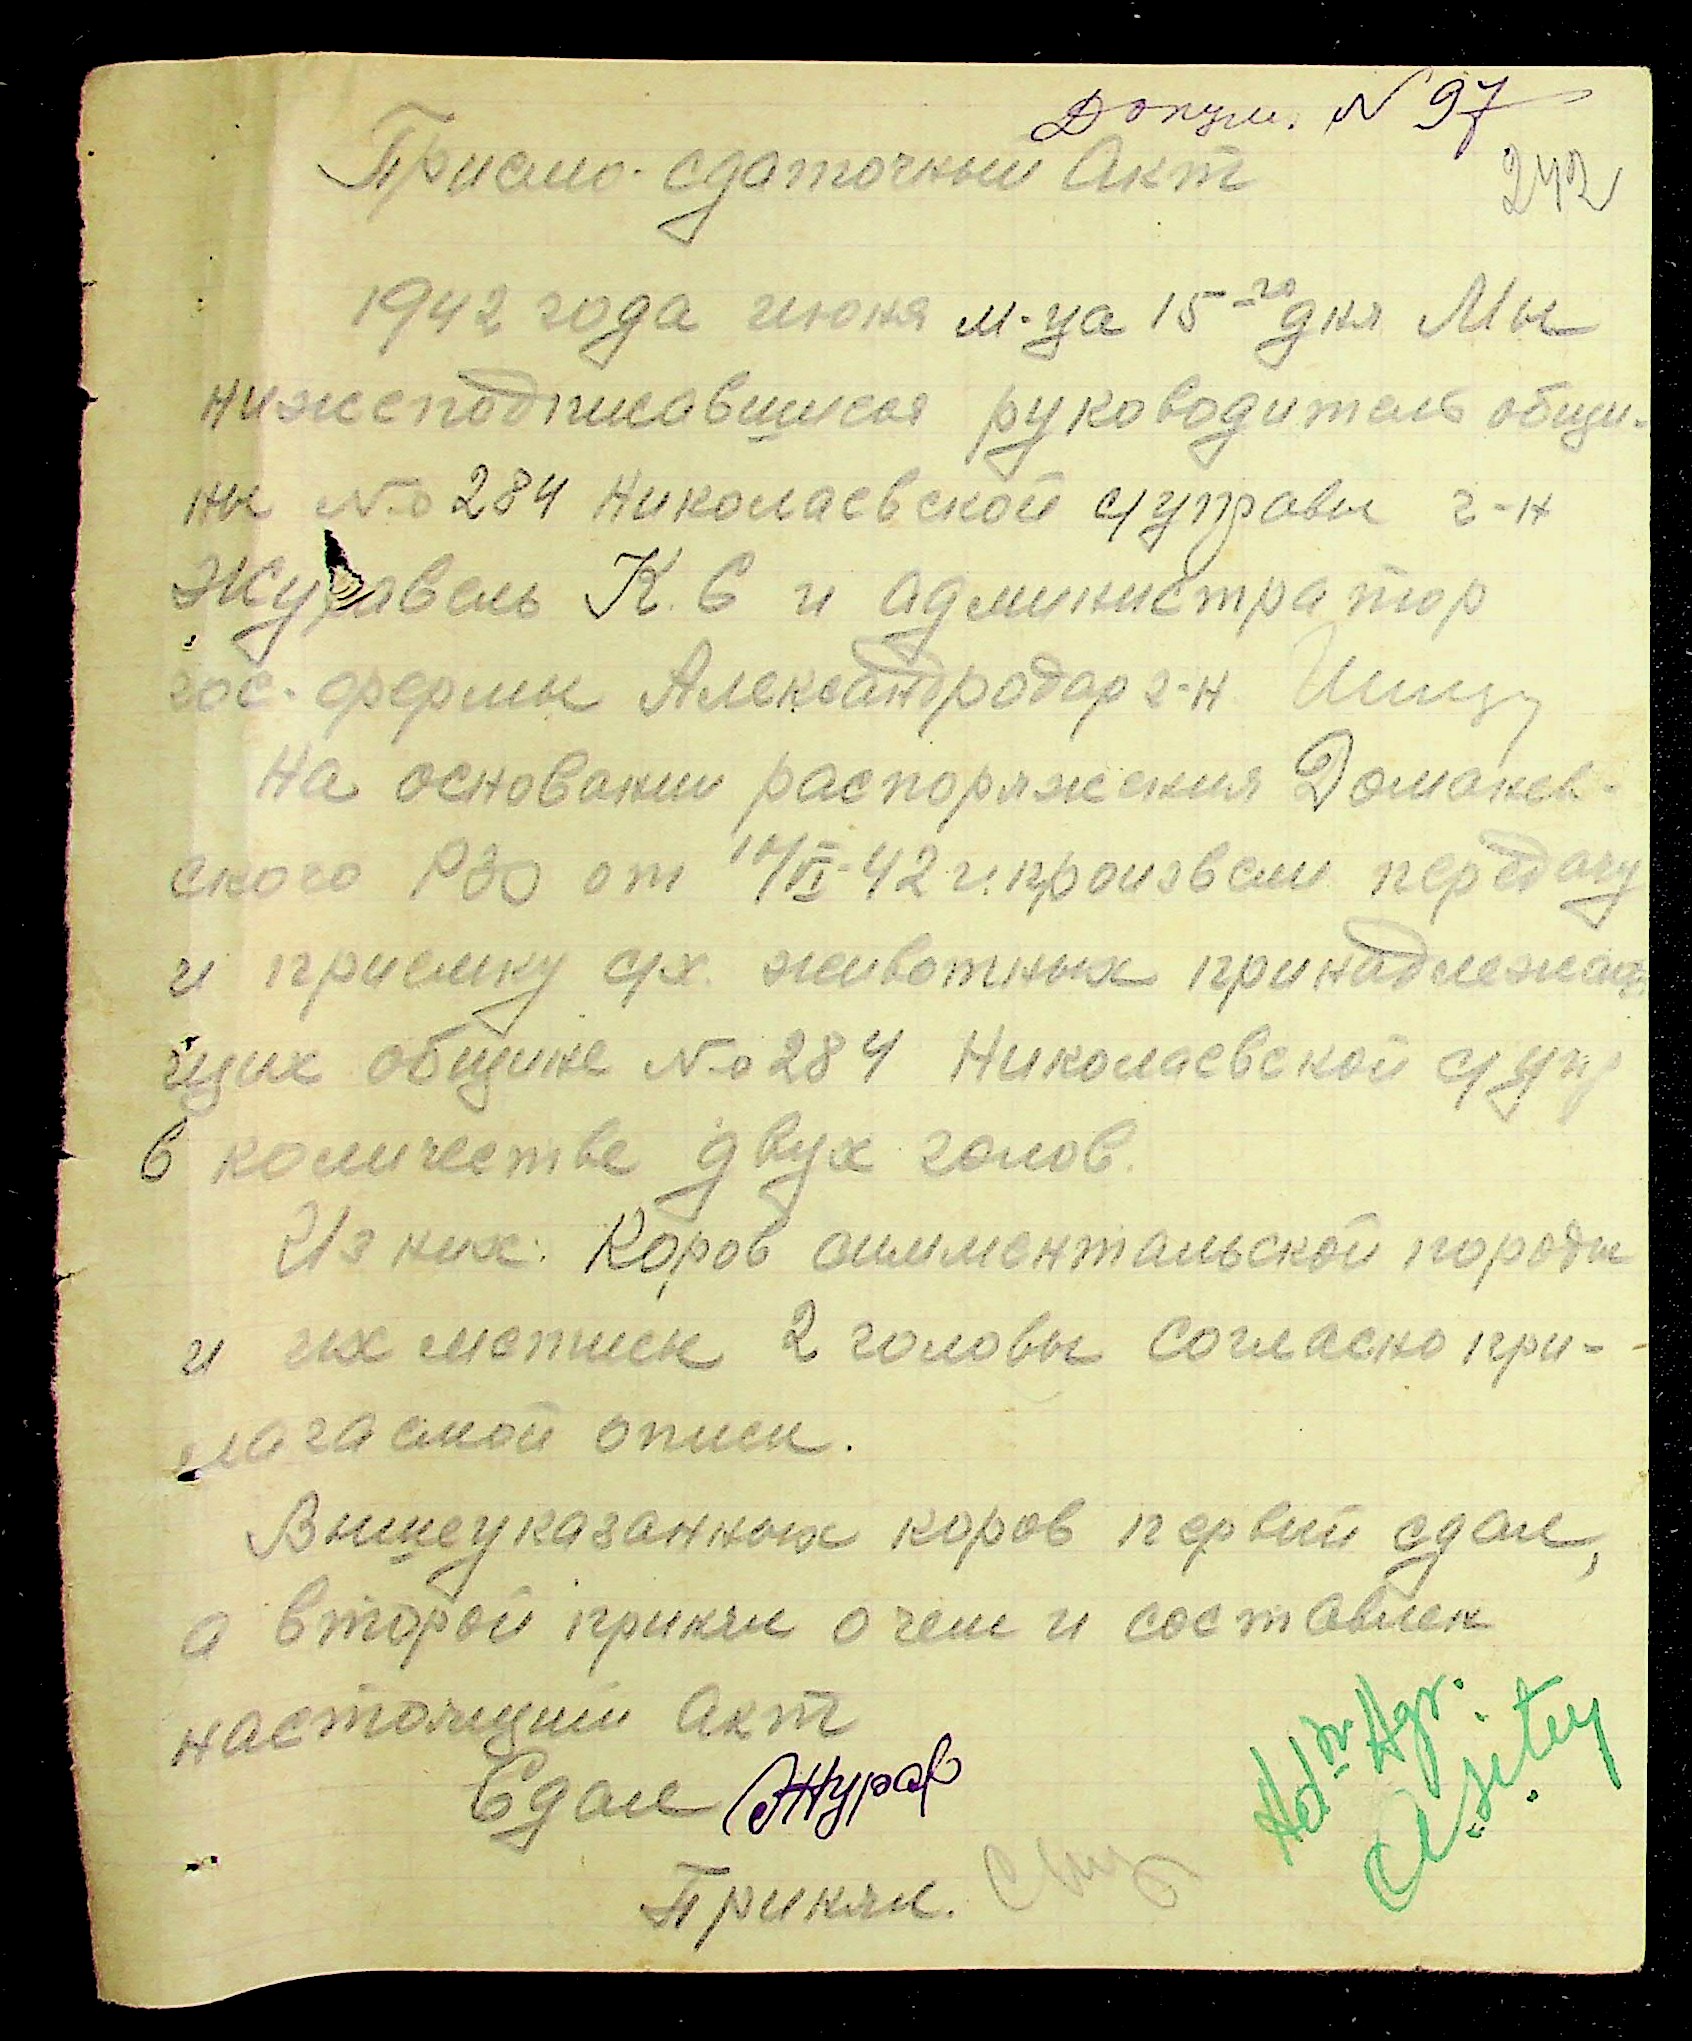 Докум. N 97
242
Приемо-сдаточный Акт
1942 года июня м-ца 15-го дня Мы
нижеподписавшиеся руководитель общи-
ны No 284 Николаевской с/управы г-н
Журавель К. С и администратор
гос. фермы Александродар г-н
На основании распоряжения Доманев-
ского РЗО от /VI-42 г. произвели передачу
и приемку с/х. животных принадлежа-
щих общине No 284 Николаевской с/упр
в количестве двух голов.
Из них: Коров симментальской породы
и их метиск 2 головы согласно при-
лагаемой описи.
Вышеуказанных коров первый сдал,
а второй принял о чем и составлен
настоящий акт
Сдал Журав
Принял.
Adr Agr.